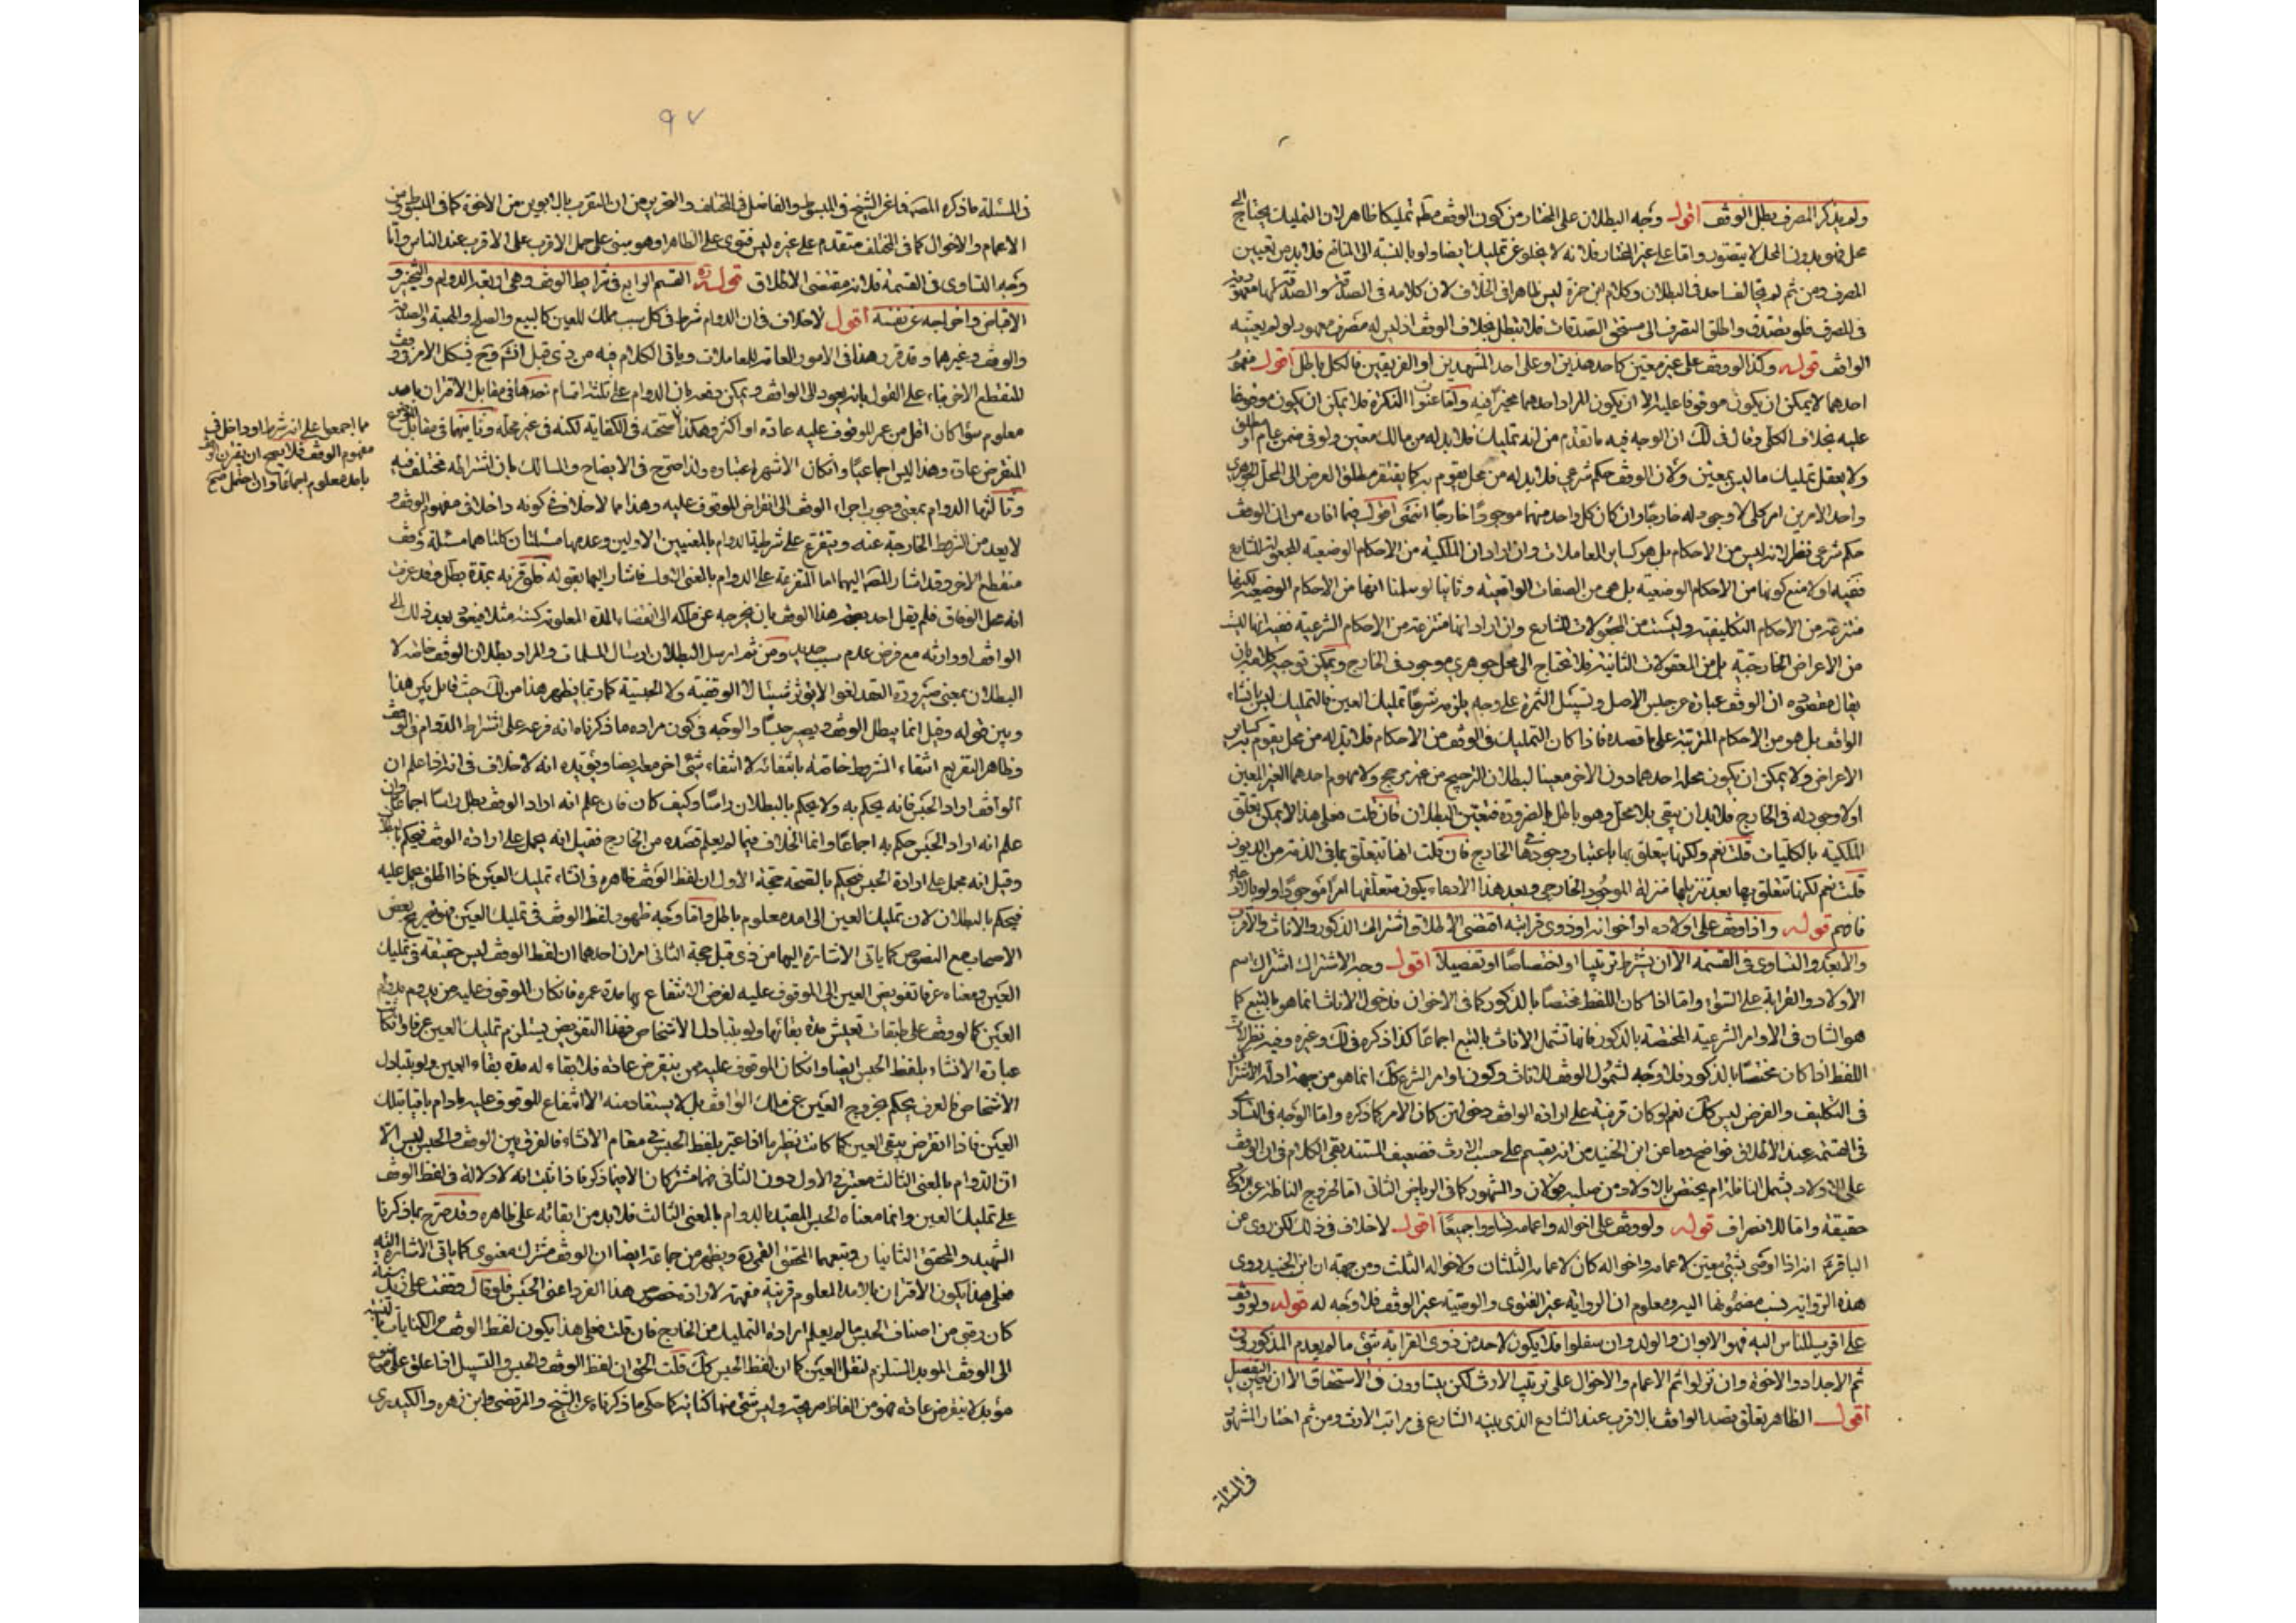 ولم يذكر المصرف بطل الوقف اقول وجه البطلان على المختار من كون الوقف تمليكا ظاهر لان التمليك يحتاج الى
محل فهو بدون المحل لا يتصور واما على غير المختار فلانه لا يخلو عن تمليك ايضا ولو بالنسبة الى المنافع فلا بد من تعيين
المصرف ومن ثم لم يخالف احد في البطلان وكلام ابن حمزة ليس ظاهرا في الخلاف لان كلامه في الصدقة
في المصرف فلو تصدق واطلق انصرف الى مستحق الصدقات فلا تبطل بخلاف الوقف اذ ليس له مصرف معهود لو لم يعينه
الواقف قوله وكذا لو وقف على غير معين كاحد هذين او على احد المشهدين او الفريقين فالكل باطل اقول مفهوم
احدهما لا يمكن ان يكون موقوفا عليه الا ان يكون المراد احدهما مخيرا فيه النكرة فلا يمكن ان يكون موقوفا
عليه بخلاف الكلي وقال في لك ان الوجه فيه ما تقدم من انه تمليك فلا بد له من مالك معين ولو في ضمن عام او مطلق
ولا يعقل تمليك ما ليس بمعين ولان الوقف حكم شرعي فلا بد له من محل يقوم به كما يفتقر مطلق العرض الى المحل الجوهري
واحد الامرين امر كلي لا وجود له خارجا وان كان كل واحد منهما موجودا خارجا انتهى اقول فيما افاده من ان الوقف
حكم شرعي نظر لانه ليس من الاحكام بل هو كسائر المعاملات وان اراد ان الملكية من الاحكام الوضعية المجعولة للشارع
ففيه اولا منع كونها من الاحكام الوضعية بل هي من الصفات الواقعية وثانيا لو سلمنا انها من الاحكام الوضعية لكنها
منتزعة من الاحكام التكليفية وليست من المجعولات للشارع وان اراد انها منتزعة من الاحكام الشرعية ففيه انها ليست
من الاعراض الخارجية بل من المعقولات الثانية فلا تحتاج الى محل جوهري موجود في الخارج ويمكن توجيه كلامه بان
يقال مقصوده ان الوقف عبارة عن حبس الاصل وتسبيل الثمرة على وجه يلزمه شرعا تمليك العين فالتمليك ليس بانشاء
الواقف بل هو من الاحكام المترتبة على ما قصده فاذا كان التمليك في الوقف من الاحكام فلا بد له من محل يقوم به كساير
الاعراض ولا يمكن ان يكون محله احدهما دون الاخر معينا لبطلان الترجيح من غير مرجح ولا مفهوم احدهما الغير المعين
اذ لا وجود له في الخارج فلا بد ان يبقى بلا محل وهو باطل بالضرورة فتعين البطلان فان قلت فعلى هذا لا يمكن تعلق
الملكية بالكليات قلت نعم ولكنها يتعلق بها باعتبار وجودها في الخارج فان قلت انها تتعلق بما في الذمة من الديون
قلت نعم لكنها تتعلق بها بعد تنزيلها منزلة الموجود الخارجي وبعد هذا الادعاء يكون متعلقها امرا موجودا ولو بالادعاء
فافهم قوله واذا وقف على اولاده او اخوانه او ذوي قرابته اقتضى الاطلاق اشتراك الذكور والاناث والاقرب
والابعد والتساوي في القسمة الا ان يشترط ترتيبا او اختصاصا او تفضيلا اقول وجه الاشتراك اشتراك اسم
الاولاد والقرابة على السواء واما اذا كان اللفظ مختصا بالذكور كما في الاخوان فدخول الاناث انما هو بالتبع كما
هو الشان في الاوامر الشرعية المختصة بالذكور فانها تشمل الاناث بالتبع اجماعا كذا ذكره في لك وغيره وفيه نظر لان
اللفظ اذا كان مختصا بالذكور فلا وجه لشمول الوقف للاناث وكون اوامر الشرع كك انما هو من جهة ادلة الاشتراك
في التكليف والفرض ليس كك نعم لو كان قرينة على ارادة الواقف دخولهن كان الامر كما ذكره واما الوجه في التساوي
في القسمة عند الاطلاق فواضح وما عن ابن الجنيد من انه يقسم على حسب الارث فضعيف المستند بقي الكلام في ان الوقف
على الاولاد يشمل النافلة ام يختص بالاولاد من صلبه قولان والمشهور كما في الرياض الثاني اما لخروج النافلة عن
حقيقة واما للانصراف قوله ولو وقف على اخواله واعمامه تساووا جميعا اقول لا خلاف في ذلك لكن روي عن
الباقر انه اذا اوصى بشيء معين لاعمامه واخواله كان لاعمامه الثلثان ولاخواله الثلث ومن جهة ان ابن الجنيد روى
هذه الرواية نسب مضمونها اليه ومعلوم ان الرواية غير الفتوى والوصية غير الوقف فلا وجه له قوله ولو وقف
على اقرب الناس اليه فهو الابوان والولد وان سفلوا فلا يكون لاحد من ذوي القرابة شيء ما لم يعدم المذكورون
ثم الاجداد والاخوة وان نزلوا ثم الاعمام والاخوال على ترتيب الارث لكن يتساوون في الاستحقاق الا ان يعين التفضيل
اقول الظاهر تعلق قصد الواقف بالاقرب عند الشارع الذي بينه الشارع في مراتب الارث ومن ثم اختار المشهور
في المسئلة
٩٧
في المسئلة ما ذكره المصنف فما عن الشيخ في المبسوط والفاضل في المختلف والتحرير من ان المتقرب بالابوين من الاخوة كما في المبسوط ومن
الاعمام والاخوال كما في المختلف متقدم على غيره ليس فتوى على الظاهر او هو مبني على حمل الاقرب على الاقرب عند الناس واما
وجه التساوي في القسمة فلانه مقتضى الاطلاق قوله القسم الرابع في شرايط الوقف وهي اربعة الدوام والتنجيز و
الاقباض واخراجه عن نفسه اقول لا خلاف في ان الدوام شرط في كل سبب مملك للعين كالبيع والصلح والهبة والصدقة
والوقف وغيرها وقد قرر هذا في الامور العامة للمعاملات وياتي الكلام فيه من ذي قبل انشم وح يشكل الامر في وقف
المنقطع الاخر بناء على القول بانه يعود الى الواقف ويمكن دفعه بان الدوام على ثلثة اقسام احدها في مقابل الاقتران بامد
معلوم سواء كان اقل من عمر الموقوف عليه عادة او اكثر وهكذا استحقه في الكفاية لكنه في غير محله وثانيها في مقابل التوقيت
المنقرض عادة وهذا ليس اجماعيا وان كان الاشهر اعتباره ولذا صرح في الايضاح والمسالك بان اشتراطه مختلف فيه
وثالثها الدوام بمعنى وجوب اجراء الوقف الى انقراض الموقوف عليه وهذا مما لا خلاف في كونه داخلا في مفهوم الوقف و
لا يعد من الشروط الخارجة عنه ويتفرع على شرطية الدوام بالمعنيين الاولين وعدمها مسئلتان كلتاهما مسئلة وقف
منقطع الاخر وقد اشار المصنف اليهما اما المتفرعة على الدوام بالمعنى الاول فاشار اليها بقوله فلو قرنه بمدة بطل وقد عرفت
انه محل الوفاق فلم يقل احد بصحة هذا الوقف بان يخرجه عن ملكه الى انقضاء المدة المعلومة كسنة مثلا فيعود بعد ذلك الى
الواقف او وارثه مع فرض عدم سبب جديد ومن ثم ارسل البطلان ارسال المسلمات والمراد بطلان الوقف خاصة لا
البطلان بمعنى صيرورة العقد لغوا لا يؤثر شيئا لا الوقفية ولا الحبسية كما ربما يظهر هذا من لك حيث قابل بين هذا
وبين قوله وقيل انما يبطل الوقف ويصير حبسا والوجه في كون مراده ما ذكرناه انه فرعه على اشتراط الدوام في الوقف
وظاهر التفريع انتفاء المشروط خاصة بانتفائه لا انتفاء شيء اخر معه ايضا ويؤيده انه لا خلاف في انه اذا علم ان
الواقف اراد الحبس فانه يحكم به ولا يحكم بالبطلان راسا وكيف كان فان علم انه اراد الوقف بطل راسا اجماعا وان
علم انه اراد الحبس حكم به اجماعا وانما الخلاف فيما لم يعلم قصده من الخارج فقيل انه يحمل على ارادة الوقف فيحكم بالبطلان
وقيل انه يحمل على ارادة الحبس فيحكم بالصحة حجة الاول ان لفظ الوقف ظاهر في انشاء تمليك العين فاذا اطلق حمل عليه
فيحكم بالبطلان لان تمليك العين الى امد معلوم باطل واما وجه ظهور لفظ الوقف في تمليك العين فهو تصريح بعض
الاصحاب مع النصوص كما ياتي الاشارة اليها من ذي قبل حجة الثاني امران احدهما ان لفظ الوقف ليس حقيقة في تمليك
العين ومعناه عرفا تفويض العين الى الموقوف عليه لغرض الانتفاع بها مدة عمره فان كان الموقوف عليه من يدوم بدوام
العين كما لو وقف على طبقات تعيش مدة بقائها ولو بتبادل الاشخاص فهذا التفويض يستلزم تمليك العين عرفا وان كان
عبارة الانشاء بلفظ الحبس ايضا وان كان الموقوف عليه ممن ينقرض عادة فلا بقاء له مدة بقاء العين ولو بتبادل
الاشخاص فالعرف يحكم بخروج العين عن ملك الواقف بل لا يستفاد منه الا انتفاع الموقوف عليه ما دام باقيا بتلك
العين فاذا انقرض يبقى العين كما كانت نظير ما اذا عبر بلفظ الحبس في مقام الانشاء فالفرق بين الوقف والحبس ليس الا
ان الدوام بالمعنى الثالث معتبر في الاول دون الثاني فهما مشتركان الا فيما ذكر فاذا ثبت انه لا دلالة في لفظ الوقف
على تمليك العين وانما معناه الحبس المقيد بالدوام بالمعنى الثالث فلا بد من ابقائه على ظاهره وقد صرح بما ذكرنا
الشهيد والمحقق الثانيان وتبعهما المحقق القمي ويظهر من جماعة ايضا ان الوقف مشترك معنوي كما ياتي الاشارة اليه
فعلى هذا يكون الاقتران بالامد المعلوم قرينة مفهمة لارادة خصوص هذا الفرد اعني الحبس فلو قال وقفت على زيد سنة
كان رقبى من اصناف الحبس ما لم يعلم ارادة التمليك من الخارج فان قلت فعلى هذا يكون لفظ الوقف من الكنايات بالنسبة
الى الوقف المؤبد المستلزم لنقل العين كما ان لفظ الحبس كك قلت الحق ان لفظ الوقف والحبس والتسبيل اذا علق على موضوع
مؤبد لا ينقرض عادة فهو من الفاظ صريحة وليس شيء منها كناية كما حكي ما ذكرناه عن الشيخ والمرتضى وابن زهره والكيدري
مما اجمعوا على انه شرط او داخل في
مفهوم الوقف فلا يصح ان يقترن الوقف
بامد معلوم اجماعا وان احتمل صح